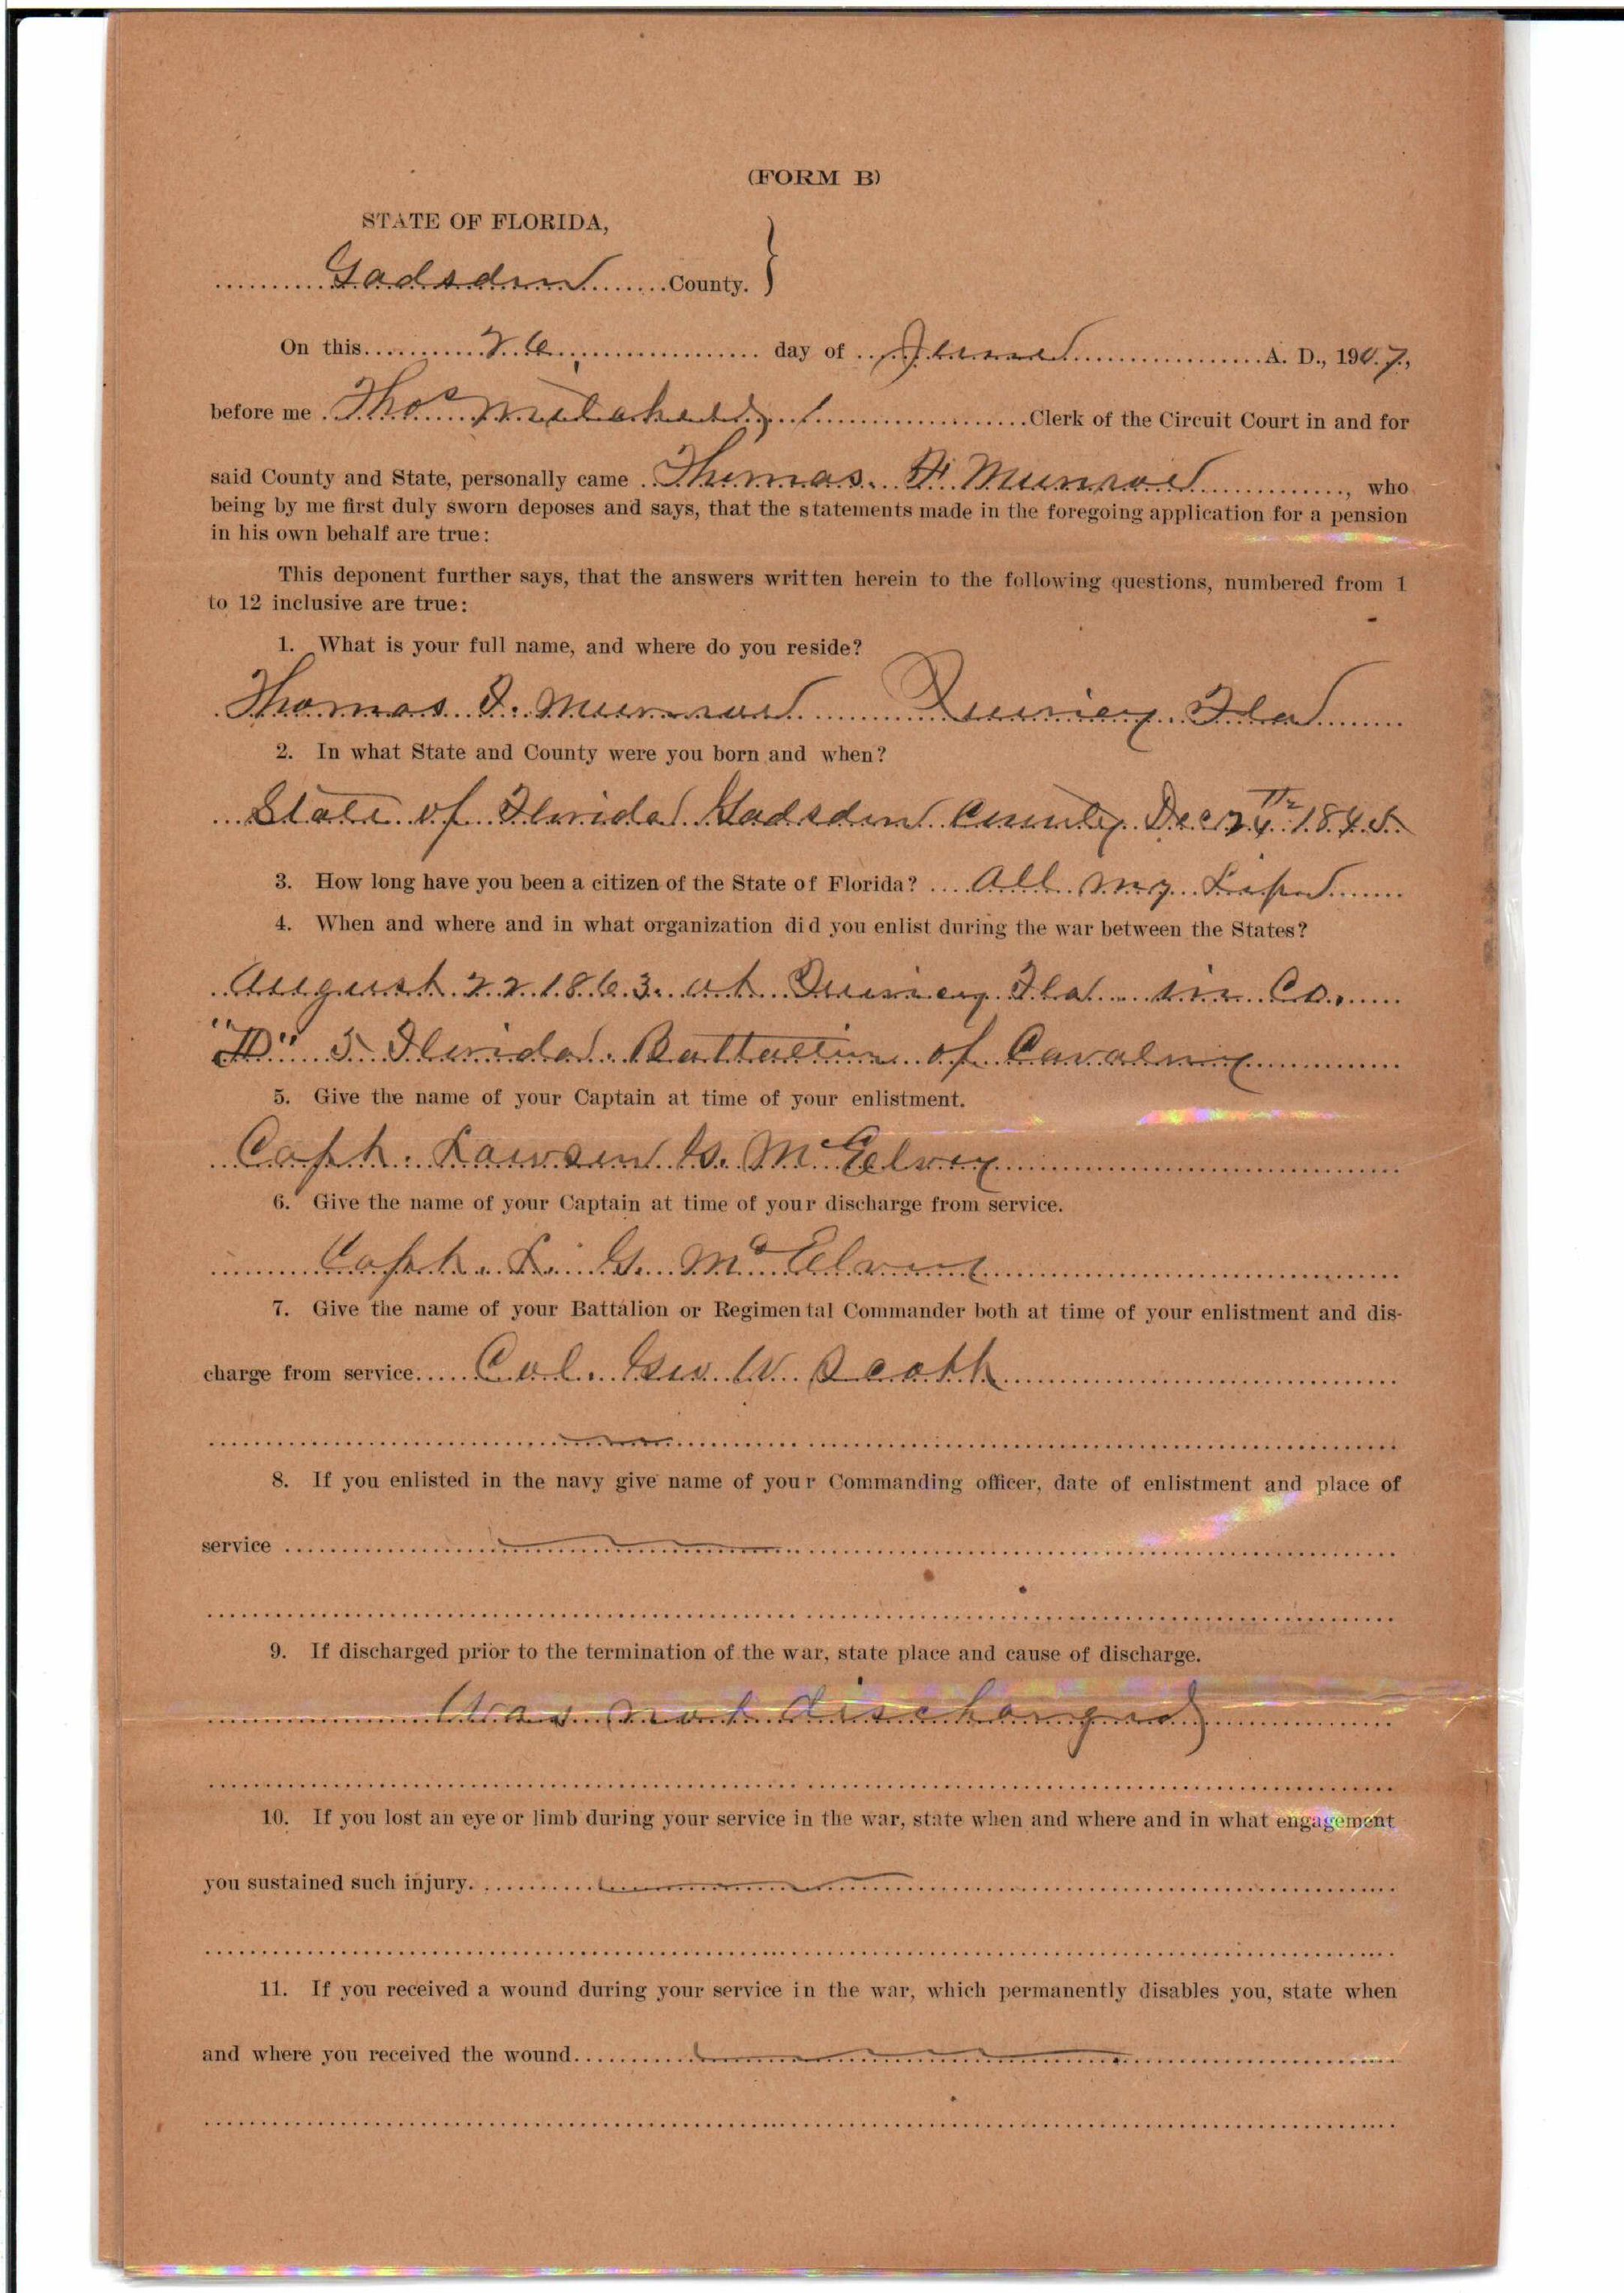 (FORM B)
STATE OF FLORIDA,
Gadsden County. }
On this 26 day of June A. D., 1907,
before me Thos Clerk of the Circuit Court in and for
said County and State, personally came Thomas F Munroe, who
being by me first duly sworn deposes and says, that the statements made in the foregoing application for a pension
in his own behalf are true:
This deponent further says, that the answers written herein to the following questions, numbered from 1
to 12 inclusive are true:
1. What is your full name, and where do you reside?
Thomas F. Munroe Quincy Fla
2. In what State and County were you born and when?
State of Florida Gadsden County Dec 24th 1845
3. How long have you been a citizen of the State of Florida? All my Life
4. When and where and in what organization did you enlist during the war between the States?
August 22 1863. at Quincy Fla in Co.
"D" 5 Florida Battalion of Cavalry
5. Give the name of your Captain at time of your enlistment.
Capt. Lawson G. McElvey
6. Give the name of your Captain at time of your discharge from service.
Capt. L. G. McElvey
7. Give the name of your Battalion or Regimental Commander both at time of your enlistment and dis-
charge from service Col. Geo W. Scott
8. If you enlisted in the navy give name of your Commanding officer, date of enlistment and place of
service
9. If discharged prior to the termination of the war, state place and cause of discharge.
Was not discharged
10. If you lost an eye or limb during your service in the war, state when and where and in what engagement
you sustained such injury.
11. If you received a wound during your service in the war, which permanently disables you, state when
and where you received the wound